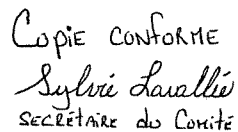 Copie CONFORME
Sylvie Lavallée
SECRÉTAIRE du Comité